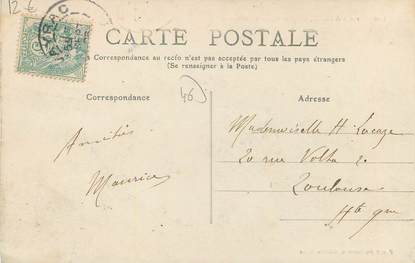 12 €
CARTE POSTALE
La Correspondance au recto n'est pas acceptée par tous les pays étrangers
(Se renseigner à la Poste)
Correspondance
46
Adresse
Amitiés
Maurice
Mademoiselle H Lacaze
20 rue Volta 2.
Toulouse
Hte Gne